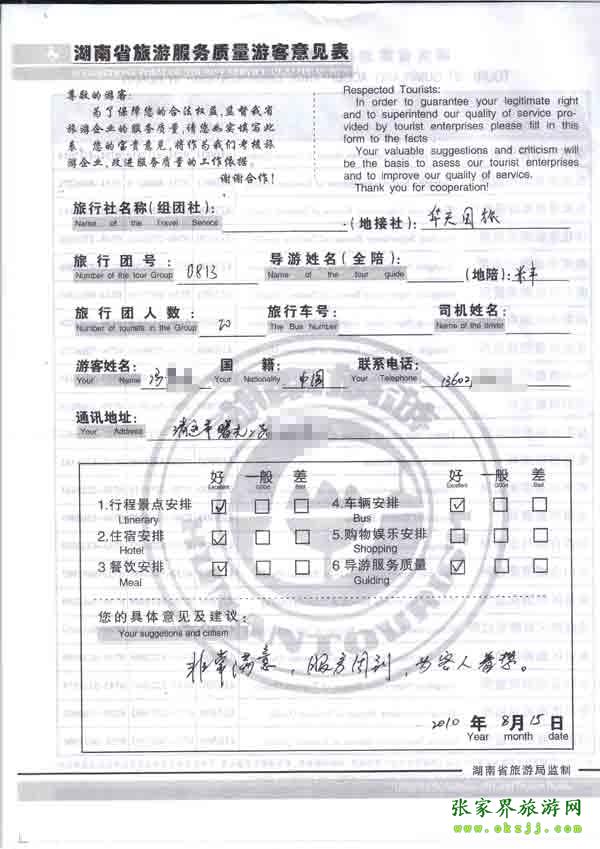 湖南省旅游服务质量游客意见表
尊敬的游客:
为了保障您的合法权益,监督我省
旅游企业的服务质量,请您如实填写此
表。您的宝贵意见,将作为我们考核旅
游企业、改进服务质量的工作依据。
谢谢合作!
Respected Tourists:
In order to guarantee your legitimate right
and to superintend our quality of service pro-
vided by tourist enterprises please fill in this
form to the facts
Your valuable suggestions and criticism will
be the basis to asess our tourist enterprises
and to improve our quality of service.
Thank you for cooperation!
旅行社名称(组团社): (地接社): 华天国旅
Name of the Travel Service
旅行团号: 0813 导游姓名(全陪): (地陪):
Number of the tour Group Name of the tour guide
旅行团人数: 20 旅行车号: 司机姓名:
Number of tourists in the Group The Bus Number Name of the driver
游客姓名: 冯 国籍: 中国 联系电话: 13602
Your Name Your Nationality Your Telephone
通讯地址: 清远市曙光二路
Your Address
好 一般 差 好 一般 差
Excellent Good Bad Excellent Good Bad
1.行程景点安排 4.车辆安排
Ltinerary Bus
2.住宿安排 5.购物娱乐安排
Hotel Shopping
3 餐饮安排 6 导游服务质量
Meal Guiding
您的具体意见及建议:
Your suggetions and critism
非常满意,服务周到,为客人着想。
2010 年 8 月 15 日
Year month date
湖南省旅游局监制
张家界旅游网
www.okzjj.com